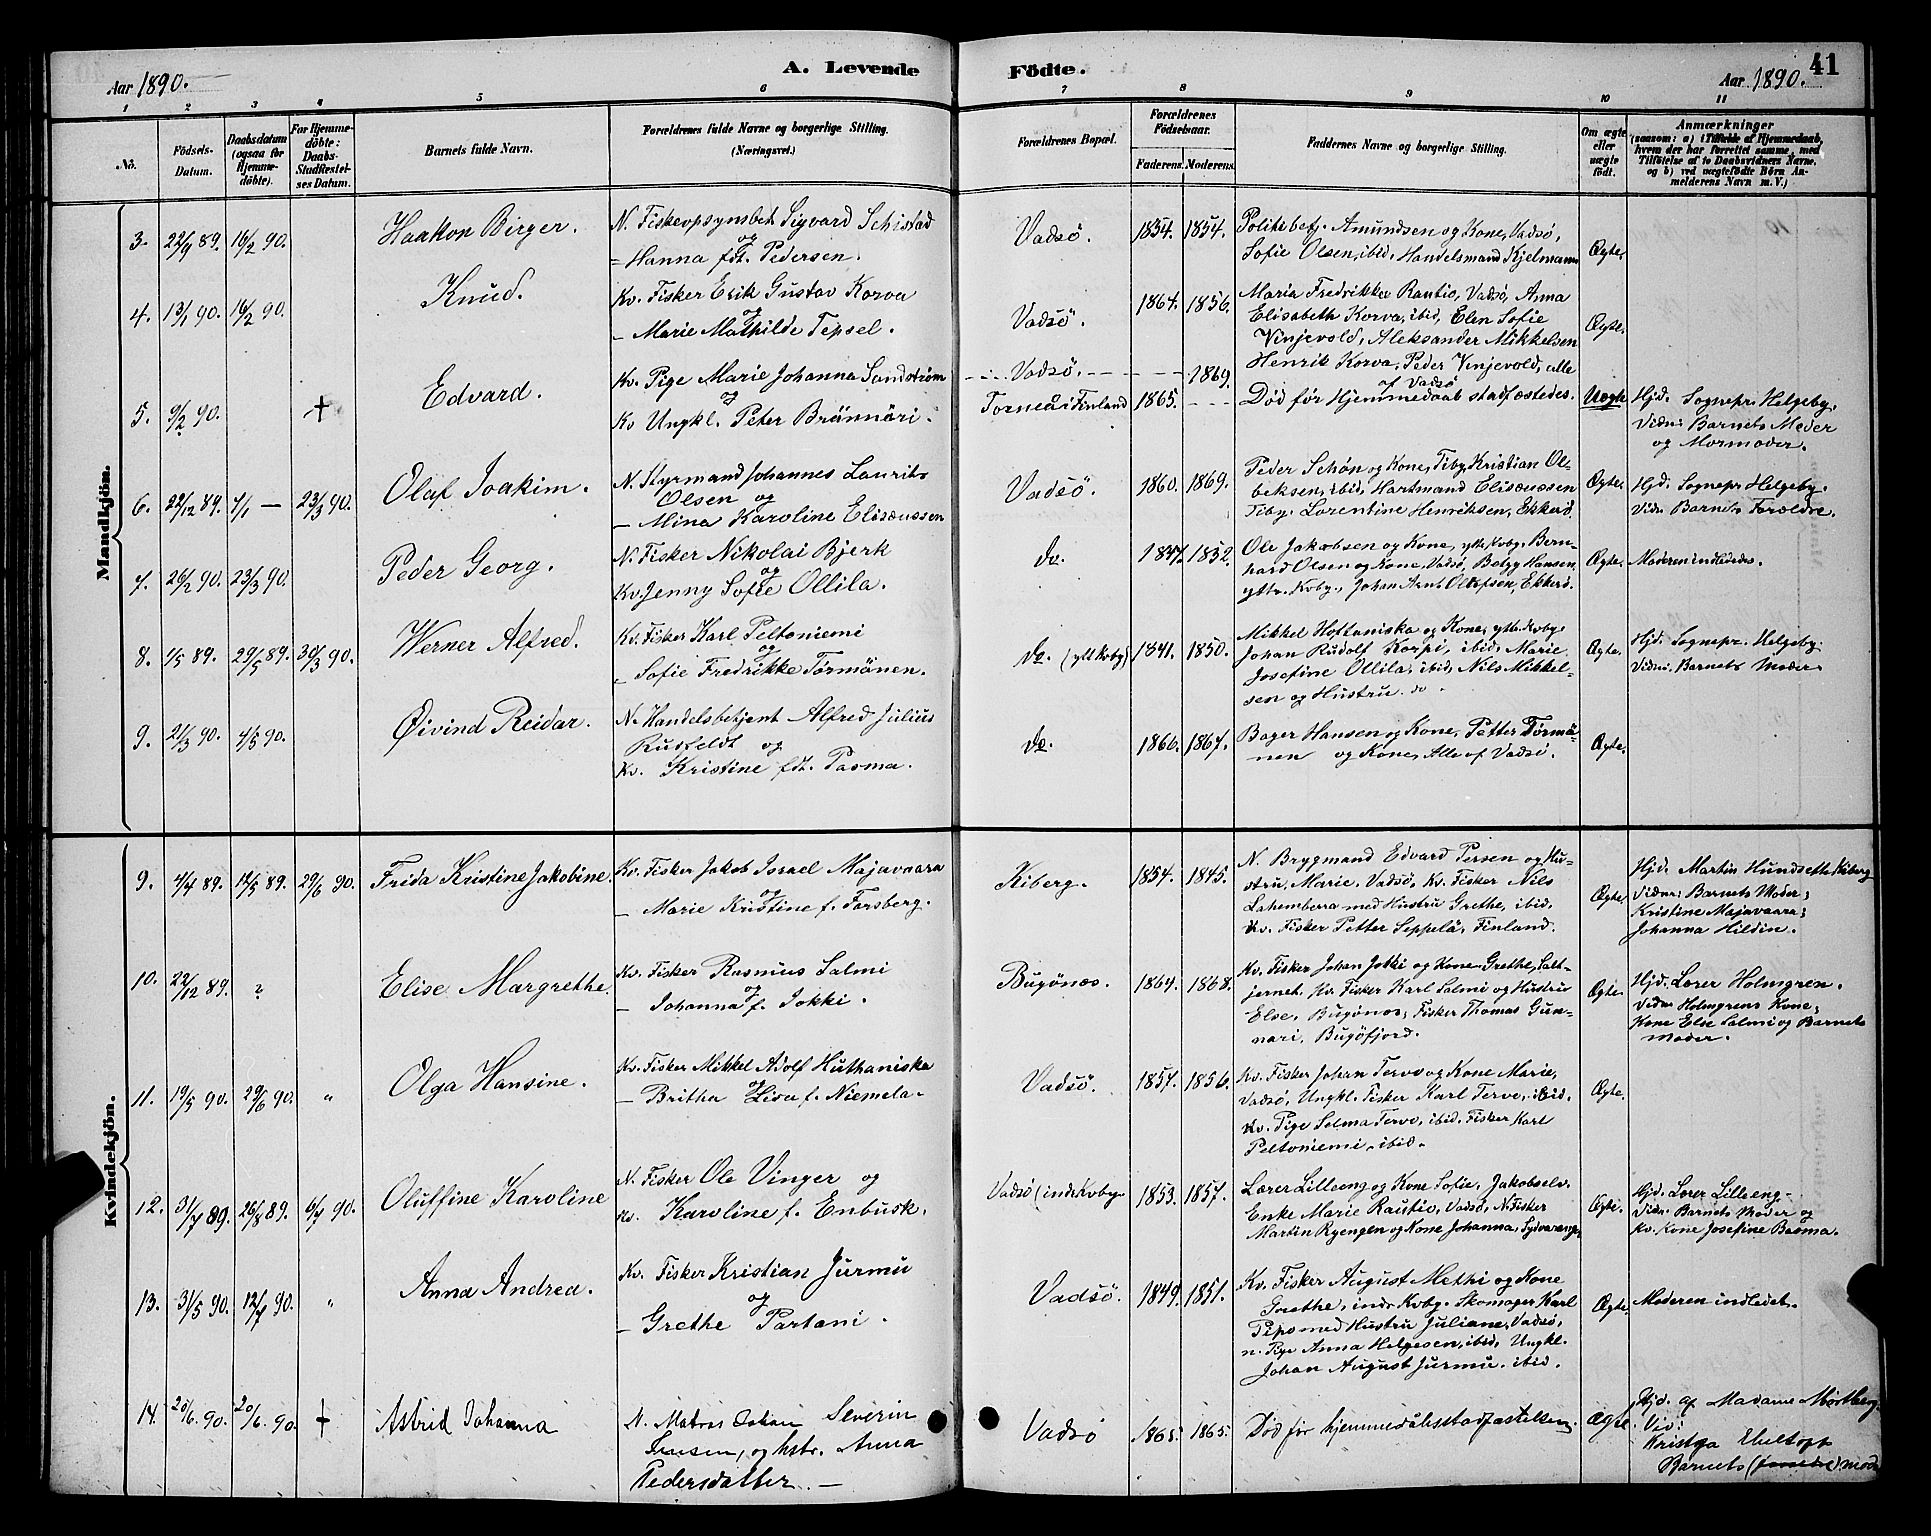 Aar 1890.
A. Levende
Födte.
Aar 1890.
41
1 2 3 4 5 6 7 8 9 10 11
No.
Födsels-
Datum.
Daabsdatum
(ogsaa for
Hjemme-
döbte).
For Hjemme-
döbte:
Daabs-
Stadfæstel-
ses Datum.
Barnets fulde Navn.
Forældrenes fulde Navne og borgerlige Stilling.
(Næringsvei.)
Forældrenes Bopæl.
Forældrenes
Födselsaar.
Faderens. Moderens.
Faddernes Navne og borgerlige Stilling.
Om ægte
eller
uægte
födt.
Anmærkninger
(saasom: a) i Tilfælde af Hjemmedaab,
hvem der har forrettet samme, med
Tilföielse af to Daabsvidners Navne,
og b) ved uægtefödte Börn An-
melderens Navn m. V.)
Mandkjön.
3. 22/9 89. 16/2 90.
Haakon Birger.
N. Fiskeopsynsbet. Sigvard Schistad
og
= Hanna fdt. Pedersen.
Vadsö. 1854. 1854.
Politibetj. Amundsen og Kone, Vadsö,
Sofie Olsen, ibid, Handelsmand Kjelmann
Ægte.
4. 13/1 90. 16/2 90.
Knud.
Kv. Fisker Erik Gustav Korva
og
— Marie Mathilde Tepsel.
Vadsö. 1864. 1856.
Maria Fredrikke Rautio, Vadsö, Anna
Elisabeth Korva, ibid, Elen Sofie
Vinjevold, Aleksander Mikkelsen
Henrik Korva, Peder Vinjevold, alle
af Vadsö
Ægte.
5. 9/2 90. +
Edvard.
Kv. Pige Marie Johanna Sandström
og
Kv Ungkl. Peter Brännäri.
Vadsö. 1869.
Torneå i Finland 1865.
Död för Hjemmedaab stadfæstedes.
Uægte
Hjd. Sognepr. Helgeby.
Vidn: Barnets Moder
og Mormoder.
6. 22/12 89. 1/1 — 23/3 90.
Olaf Joakim.
N. Styrmand Johannes Laurits
Olsen og
— Mina Karoline Elisæussen
Vadsö. 1860. 1869.
Peder Schön og Kone, Tiby, Kristian Ol-
beksen, ibid, Hartmand Elisæussen
Tiby. Lorentine Henriksen, Ekkerö.
Ægte.
Hjd. Sognepr. Helgeby.
Vidn: Barnets Forældre.
7. 26/2 90. 23/3 90.
Peder Georg.
N. Fisker Nikolai Bjerk
og
Kv. Jenny Sofie Ollila.
do. 1847. 1852.
Ole Jakobsen og Kone, yttr. Kvby. Bern-
hard Olsen og Kone, Vadsö, Hansen,
yttr. Kvby., Johan Arnt Ollefsen, Ekkerö.
Ægte.
Moderen indledes.
8. 1/5 89. 29/5 89. 30/3 90.
Werner Alfred.
Kv. Fisker Karl Peltoniemi
og
— Sofie Fredrikke Törmänen.
do. (ytt Kvby) 1841. 1850.
Mikkel Hottaniska og Kone, yttr. Kvby.
Johan Rudolf Korpi, ibid, Marie
Josefine Ollila, ibid, Nils Mikkel-
sen og Hustru. do.
Ægte.
Hjd. Sognepr. Helgeby.
Vidn: Barnets Moder.
9. 21/3 90. 4/5 90.
Øivind Reidar.
N. Handelsbetjent Alfred Julius
Rusfeldt og
Kv. Kristine fdt. Pasma.
do. 1866. 1867.
Bager Hansen og Kone, Petter Törmä-
nen og Kone, Alle af Vadsö.
Ægte.
Kvindekjön.
9. 4/4 89. 12/5 89. 29/6 90.
Frida Kristine Jakobine.
Kv. Fisker Jakob Israel Majavaara
og
— Marie Kristine f. Forsberg.
Kiberg. 1854. 1845.
N. Brygmand Edvard Persen og Hu-
stru, Marie, Vadsö, Kv. Fisker Nils
Lahemberra med Hustru Grethe, ibid.
Kv. Fisker Petter Seppelä, Finland.
Ægte.
Hjd. Martin Hundsetth Kiberg
Vidner: Barnets Moder;
Kristine Majavaara;
Johanna Hildin.
10. 22/12 89. ?
Elise Margrethe.
Kv. Fisker Rasmus Salmi
og
— Johanna f. Jokki.
Bugönæs. 1864. 1868.
Kv. Fisker Johan Jokki og Kone Grethe, Salt-
jernet. Kv. Fisker Karl Salmi og Hustru
Else, Bugönæs; Fisker Thomas Gun-
nari, Bugöfjord.
Ægte.
Hjd. Lærer Holmgren.
Vidn: Holmgrens Kone,
Kone Else Salmi og Barnets
Moder.
11. 19/5 90. 29/6 90. „
Olga Hansine.
Kv. Fisker Mikkel Adolf Huthaniska
og
— Britha Lisa f. Niemela.
Vadsö. 1857. 1856.
Kv. Fisker Johan Tervo og Kone Marie,
Vadsö, Ungkl. Fisker Karl Tervo, ibid.
Kv. Pige Selma Tervo, ibid. Fisker Karl
Peltoniemi, ibid.
Ægte.
12. 31/7 89. 26/8 89. 6/7 90.
Oluffine Karoline
N. Fisker Ole Vinger og
Kv. Karoline f. Enbusk.
Vadsö (indr. Kvby. 1853. 1857.
Lærer Lilleeng og Kone Sofie, Jakobselv.
Enke Marie Rautio, Vadsö, N. Fisker
Martin Ryengen og Kone Johanna, Sydvaranger
Ægte.
Hjd. Lærer Lilleeng.
Vidn: Barnets Moder og
Kv. Kone Josefine Basma.
13. 31/5 90. 12/7 90. „
Anna Andrea.
Kv. Fisker Kristian Jurmu
og
— Grethe Partani.
Vadsö. 1849. 1851.
Kv. Fisker August Methi og Kone
Grethe, indr. Kvby. Skomager Karl
Pipo med Hustru Juliane, Vadsö,
n. Pige Anna Helgesen, ibid, Ungkl.
Johan August Jurmu, ibid.
Ægte.
Moderen indledet.
14. 20/6. 90. 20/6. 90 +
Astrid Johanna
N. Matros Johan Severin
Jensen, og hstr. Anna
Pedersdatter. —
Vadsö 1865. 1865.
Död för hjemmedåbsstadfæstelsen.
Ægte
Hjd. af Madame Mortberg.
Vid:
Barnets (Forældre) mod